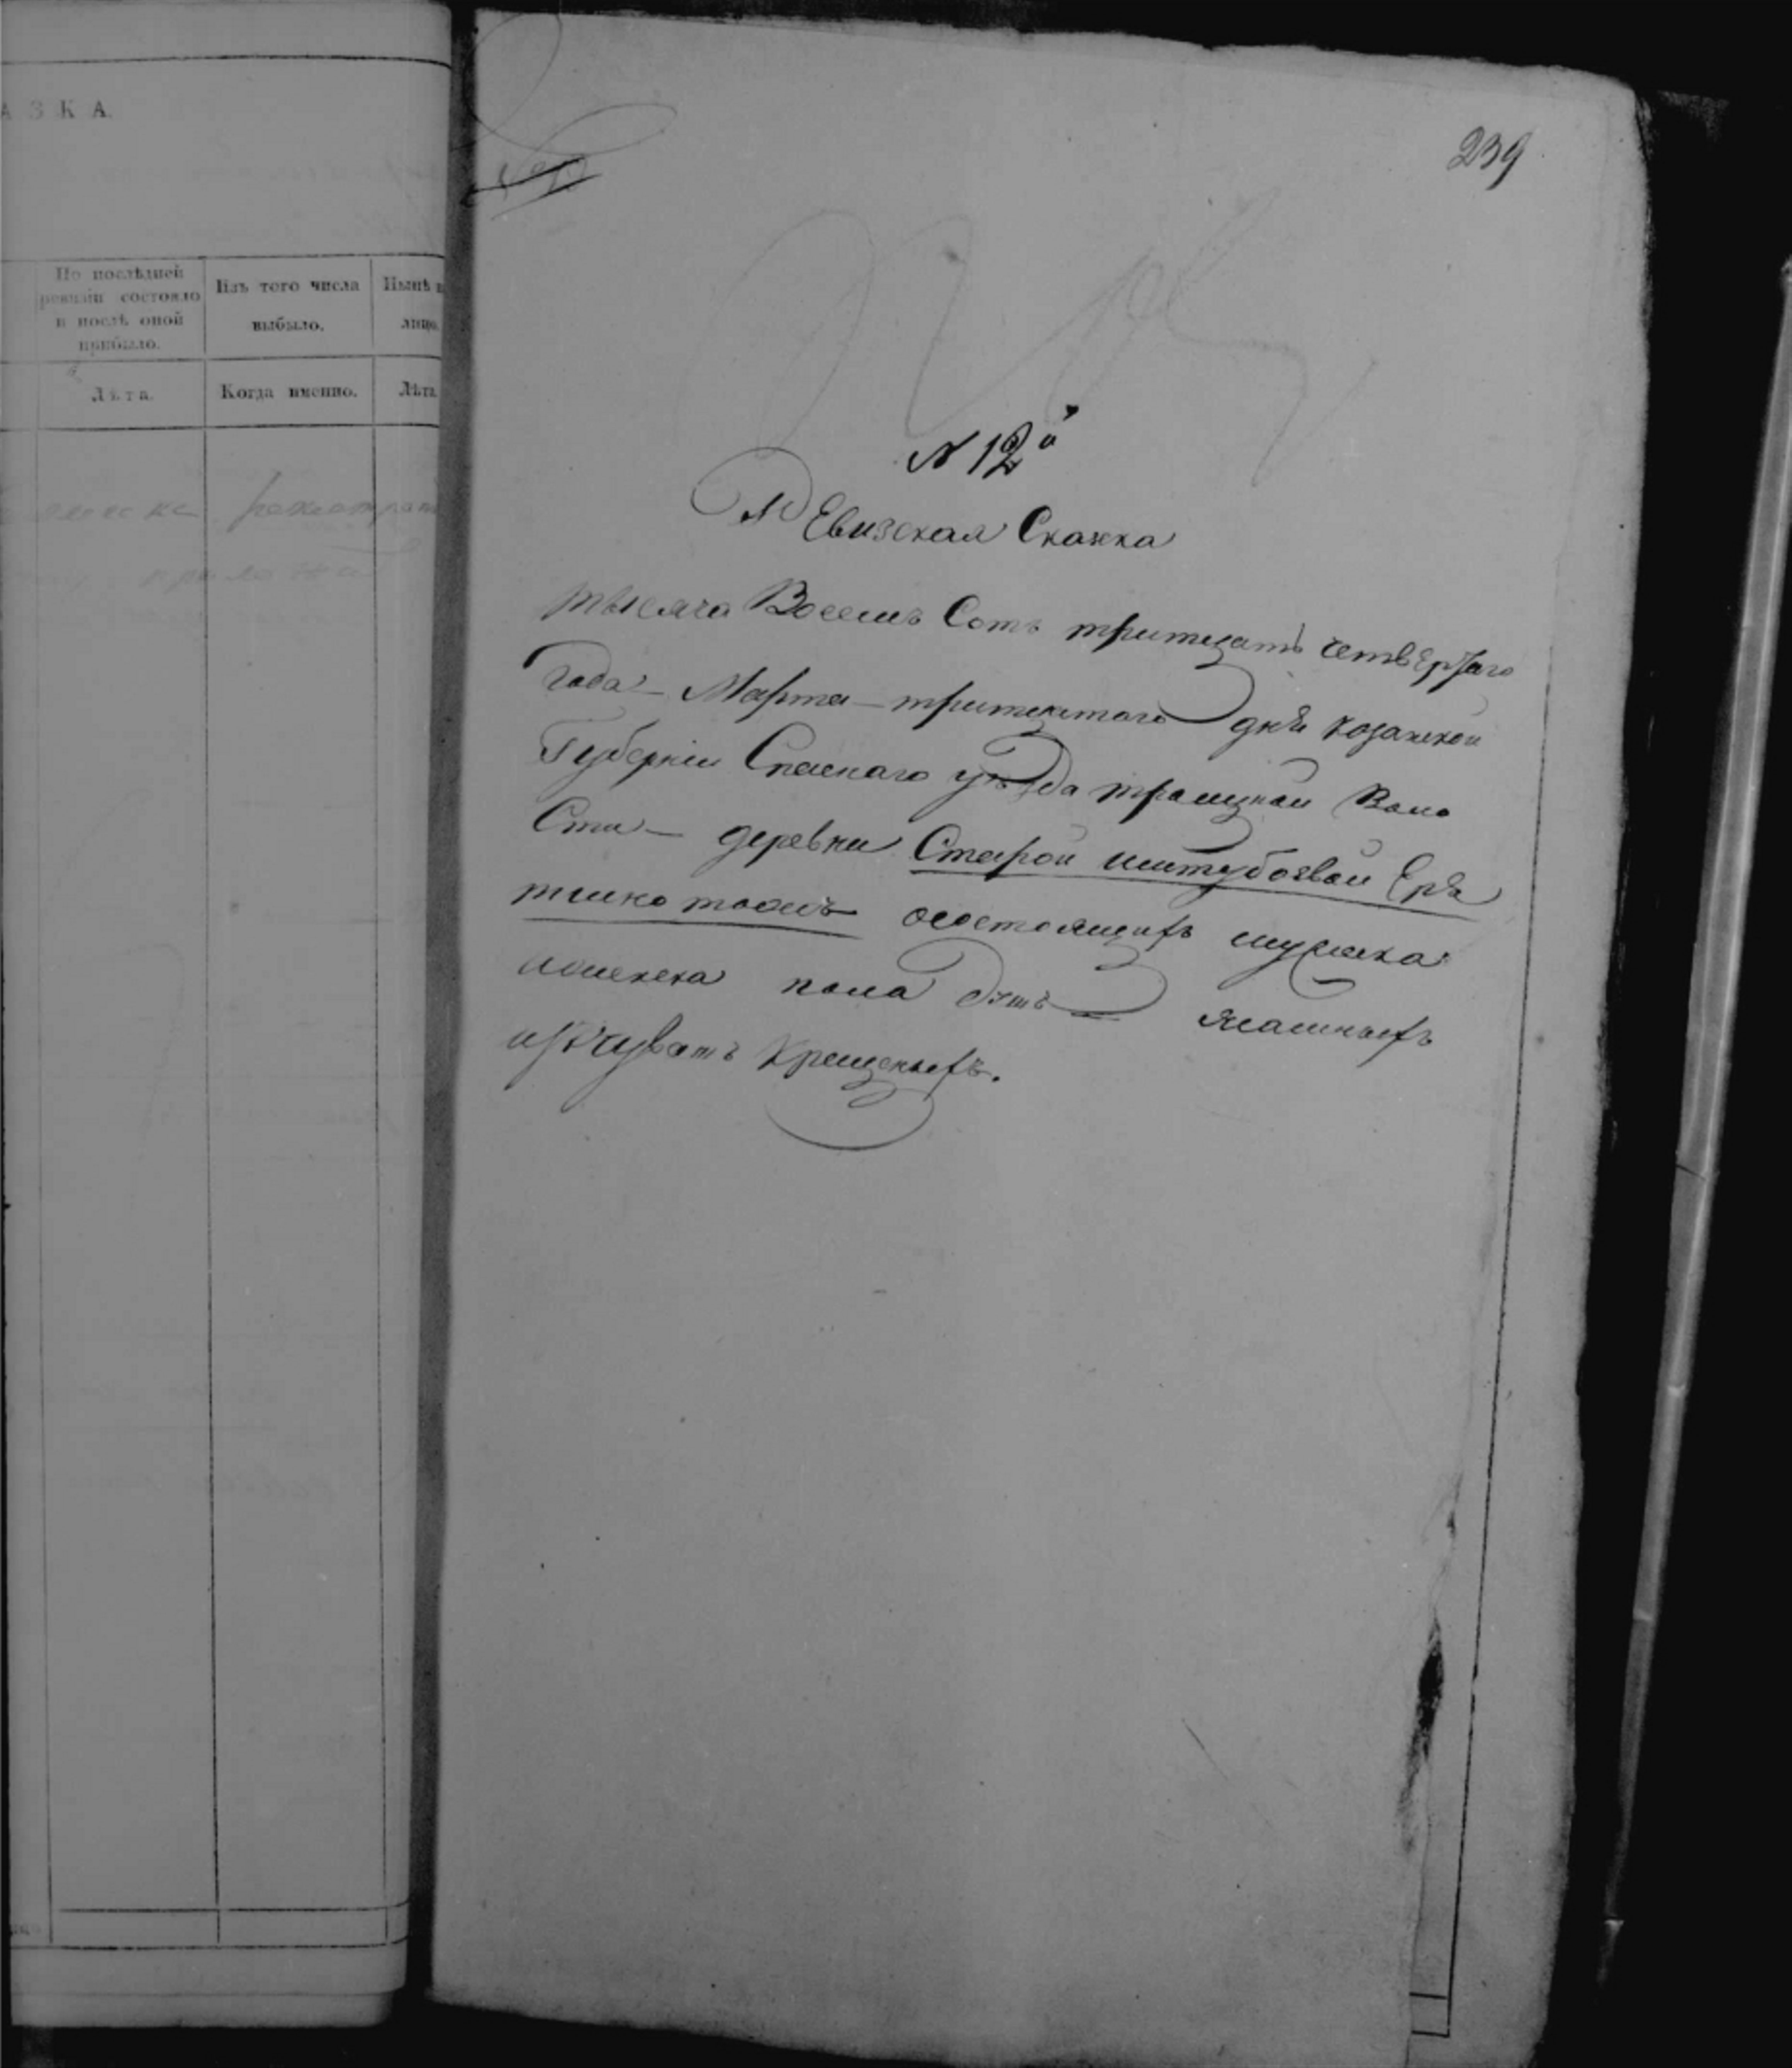 А З К А.
По послѣдней ревизіи состояло и послѣ оной прибыло.
Изъ того числа выбыло.
Нынѣ
лицо.
Лѣта.
Когда именно.
Лѣта.
239
N 12й
Ревизская Скаска
тысяча Восемь Сотъ тритцать четвертаго
Года Марта тритцатаго дня козанской
Губерніи Спаскаго уѣзда троицкой Воло
Сти деревни Старой
осостоящихъ мужска
иженска пола душъ ясашныхъ
изъ чувашъ Крещеныхъ.